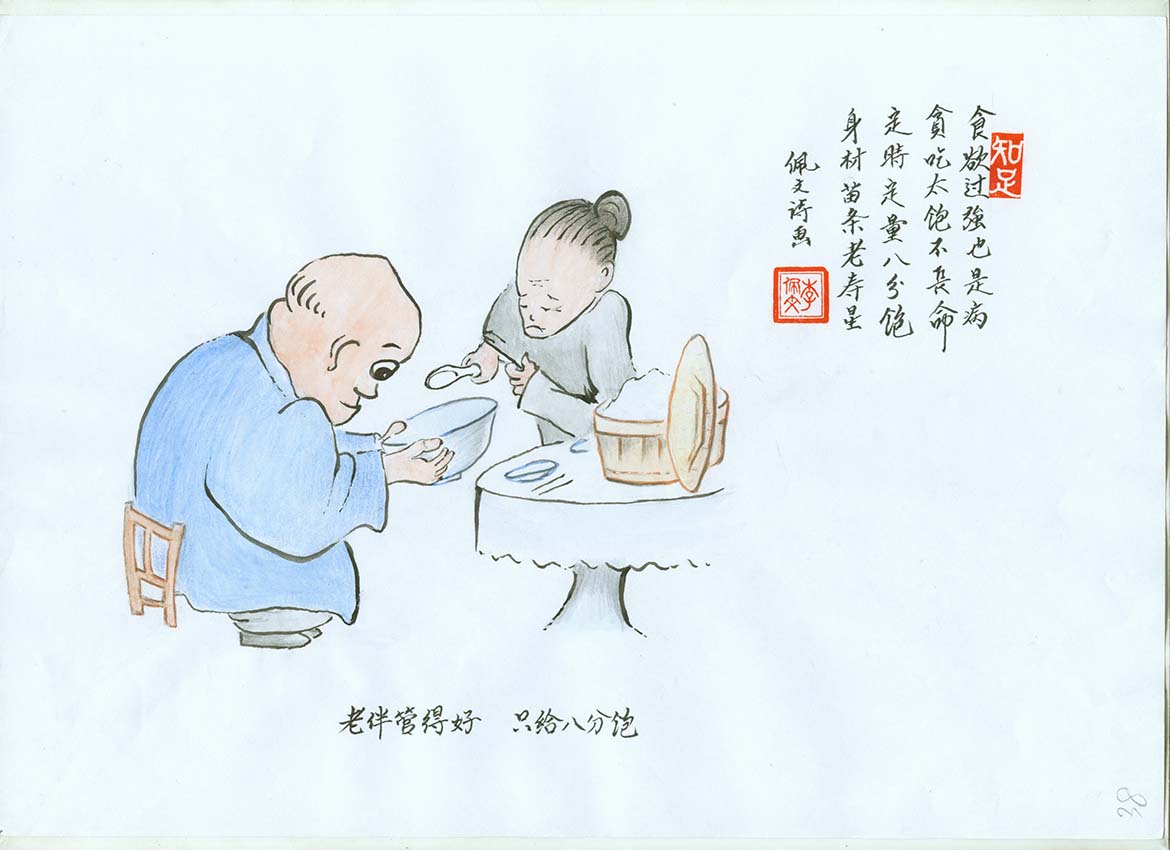 知足
食欲过強也是病
貪吃太饱不長命
定時定量八分饱
身材苗条老寿星
佩文诗画
李佩文
老伴管得好 只给八分饱
38